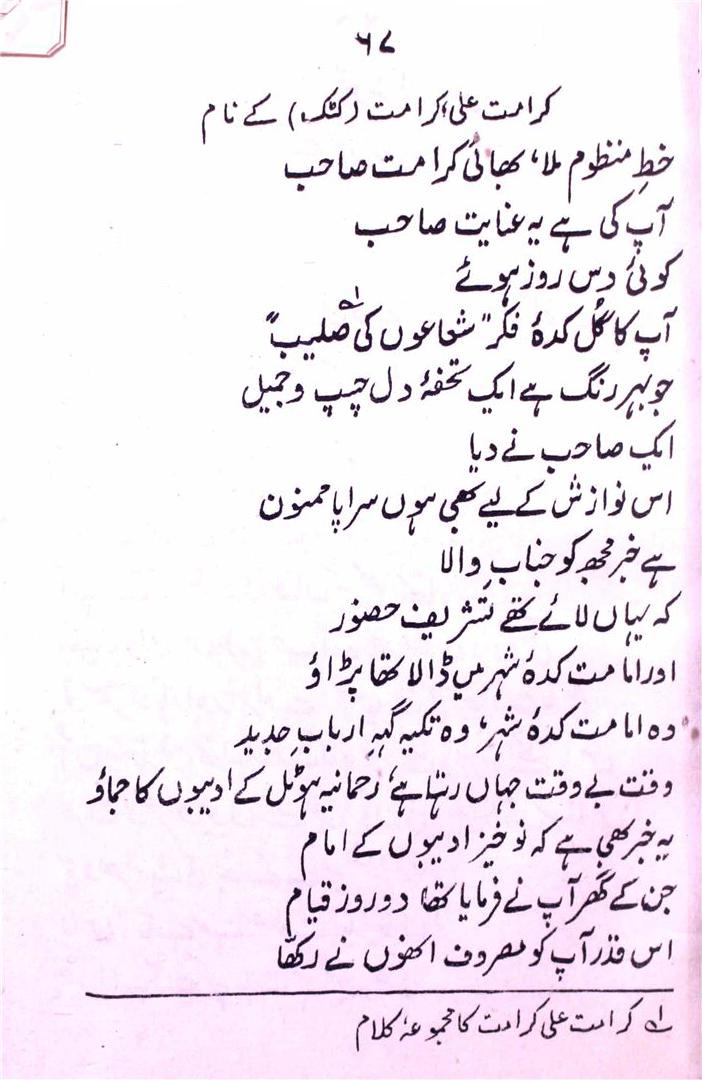 ۶۷
کرامت علی کرامت (کٹک) کے نام
خطِ منظوم ملا، بھائی کرامت صاحب
آپ کی ہے یہ عنایت صاحب
کوئی دس روز ہوئے
آپ کا گل کدۂ فکر "شعاعوں کی صلیب"؂۱
جو بہر رنگ ہے ایک تحفۂ دل چسپ و جمیل
ایک صاحب نے دیا
اس نوازش کے لیے بھی ہوں سراپا ممنون
ہے خبر مجھ کو جنابِ والا
کہ یہاں لائے تھے تشریف حضور
اور امامت کدۂ شہر میں ڈالا تھا پڑاؤ
وہ امامت کدۂ شہر، وہ تکیہ گہہِ اربابِ جدید
وقت بے وقت جہاں رہتا ہے، رحمانیہ ہوٹل کے ادیبوں کا جماؤ
یہ خبر بھی ہے کہ نوخیز ادیبوں کے امام
جن کے گھر آپ نے فرمایا تھا دو روز قیام
اس قدر آپ کو مصروف انھوں نے رکھا
؂۱ کرامت علی کرامت کا مجموعۂ کلام